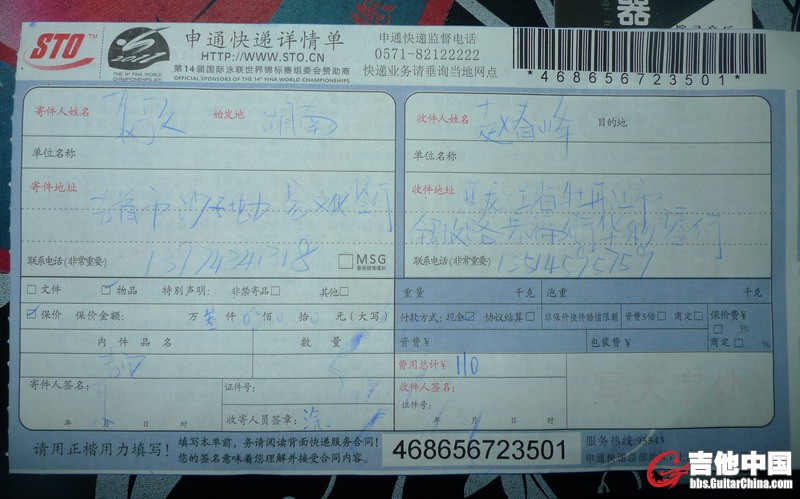 器
STO™
2011
THE 14TH FINA WORLD CHAMPIONSHIPS 2011
申通快递详情单
HTTP://WWW.STO.CN
第14届国际泳联世界锦标赛组委会赞助商
OFFICIAL SPONSORS OF THE 14TH FINA WORLD CHAMPIONSHIPS
申通快递监督电话
0571-82122222
快递业务请垂询当地网点
*468656723501*
寄件人姓名 始发地 湖南
收件人姓名 赵春峰 目的地
单位名称
单位名称
寄件地址
收件地址 黑龙江省牡丹江市
联系电话(非常重要) 13974341318 MSG
联系电话(非常重要) 13514595759
文件 物品 特别声明: 非禁寄品 其他
重量 千克 泡重 千克
保价 保价金额: 万 叁 仟 0 佰 0 拾 0 元(大写)
付款方式: 现金 协议结算 非保价快件赔偿限额 资费5倍 商定 保价费¥
3%
内件品名 数量
资费¥ 包装费¥ 商定 %
吉他
费用总计¥ 110
寄件人签名: 证件号:
收件人签名:
证件号:
收寄人员签章:
年 月 日 时
年 月 日 时
请用正楷用力填写!
填写本单前,务请阅读背面快递服务合同!
您的签名意味着您理解并接受合同内容。
468656723501
服务热线:95543
申通快递总部地
吉他中国
bbs.GuitarChina.com